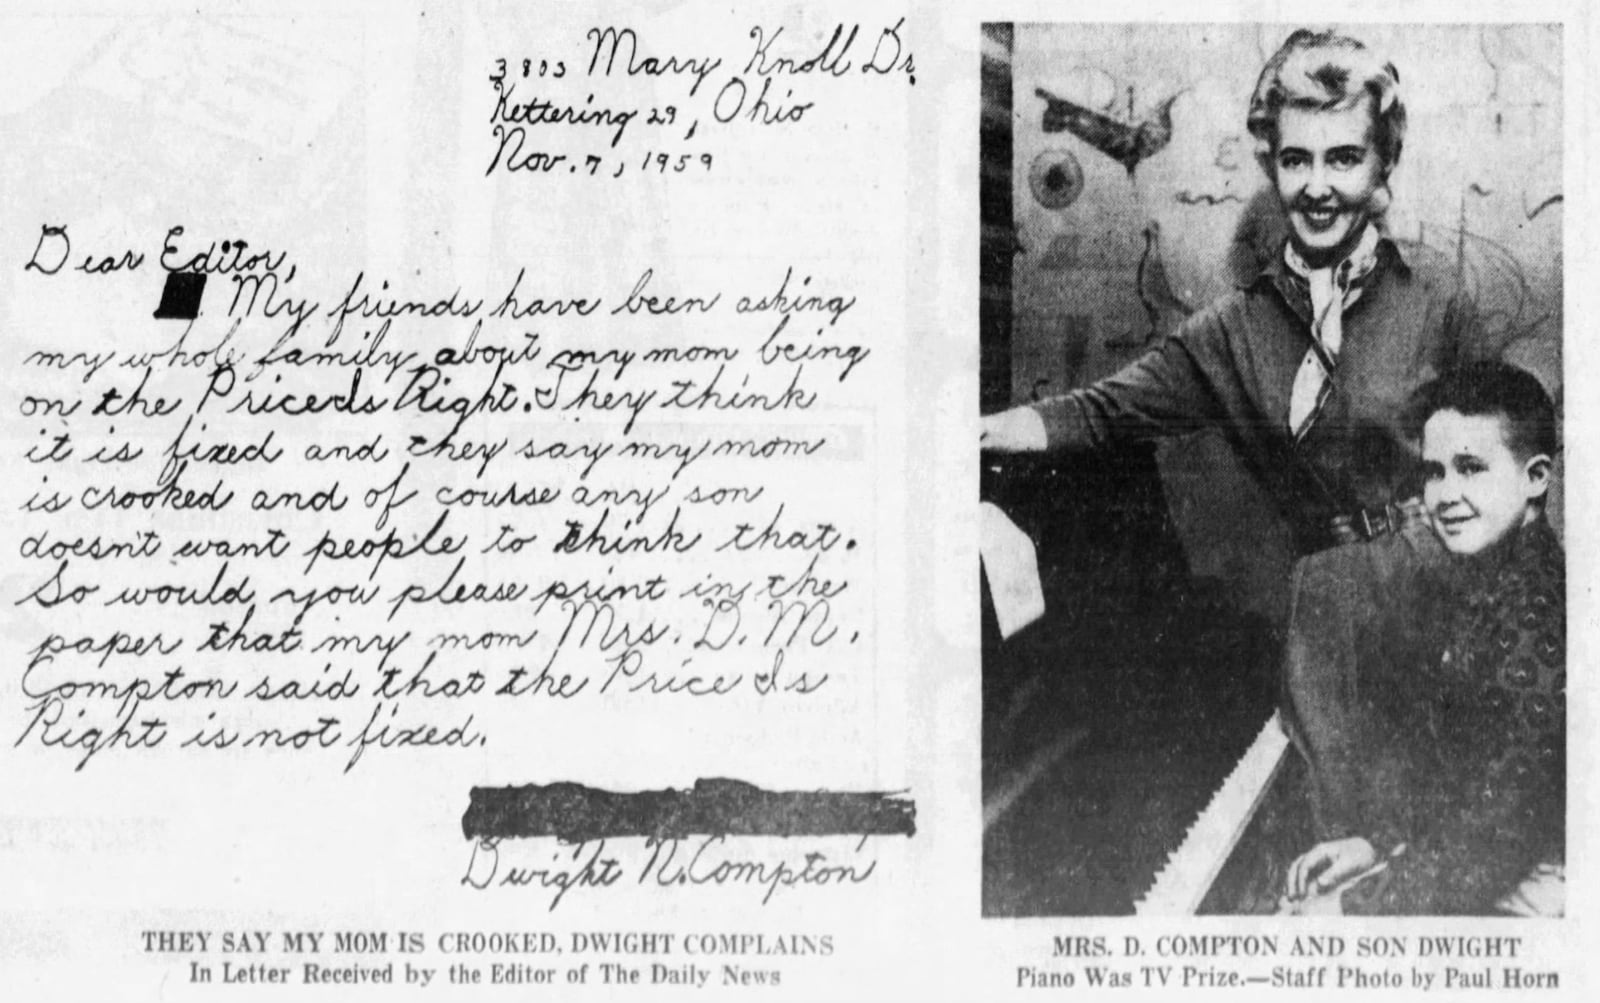 3803 Mary Knoll Dr.
Kettering 29, Ohio
Nov. 7, 1959
Dear Editor,
My friends have been asking
my whole family about my mom being
on the Price Is Right. They think
it is fixed and they say my mom
is crooked and of course any son
doesn't want people to think that.
So would you please print in the
paper that my mom Mrs. D. M.
Compton said that the Price Is
Right is not fixed.
Dwight N. Compton
THEY SAY MY MOM IS CROOKED, DWIGHT COMPLAINS
In Letter Received by the Editor of The Daily News
MRS. D. COMPTON AND SON DWIGHT
Piano Was TV Prize.—Staff Photo by Paul Horn